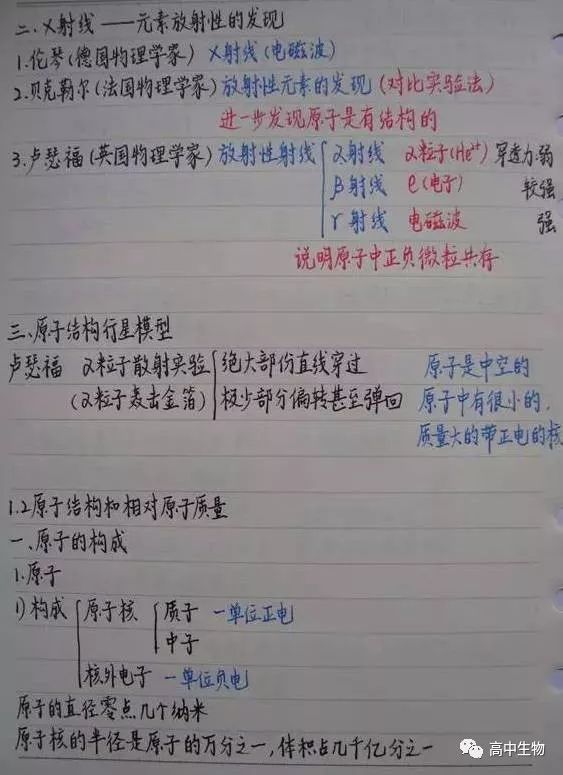 二、X射线——元素放射性的发现
1.伦琴(德国物理学家) X射线(电磁波)
2.贝克勒尔(法国物理学家)放射性元素的发现(对比实验法)
进一步发现原子是有结构的
3.卢瑟福(英国物理学家)放射性射线 α射线 α粒子(He²⁺) 穿透力:弱
β射线 e(电子) 较强
γ射线 电磁波 强
说明原子中正负微粒共存
三、原子结构行星模型
卢瑟福 α粒子散射实验 绝大部份直线穿过 原子是中空的
(α粒子轰击金箔) 极少部分偏转甚至弹回 原子中有很小的,
质量大的带正电的核
1.2原子结构和相对原子质量
一、原子的构成
1.原子
1)构成 原子核 质子 一单位正电
中子
核外电子 一单位负电
原子的直径零点几个纳米
原子核的半径是原子的万分之一,体积占几千亿分之一
高中生物